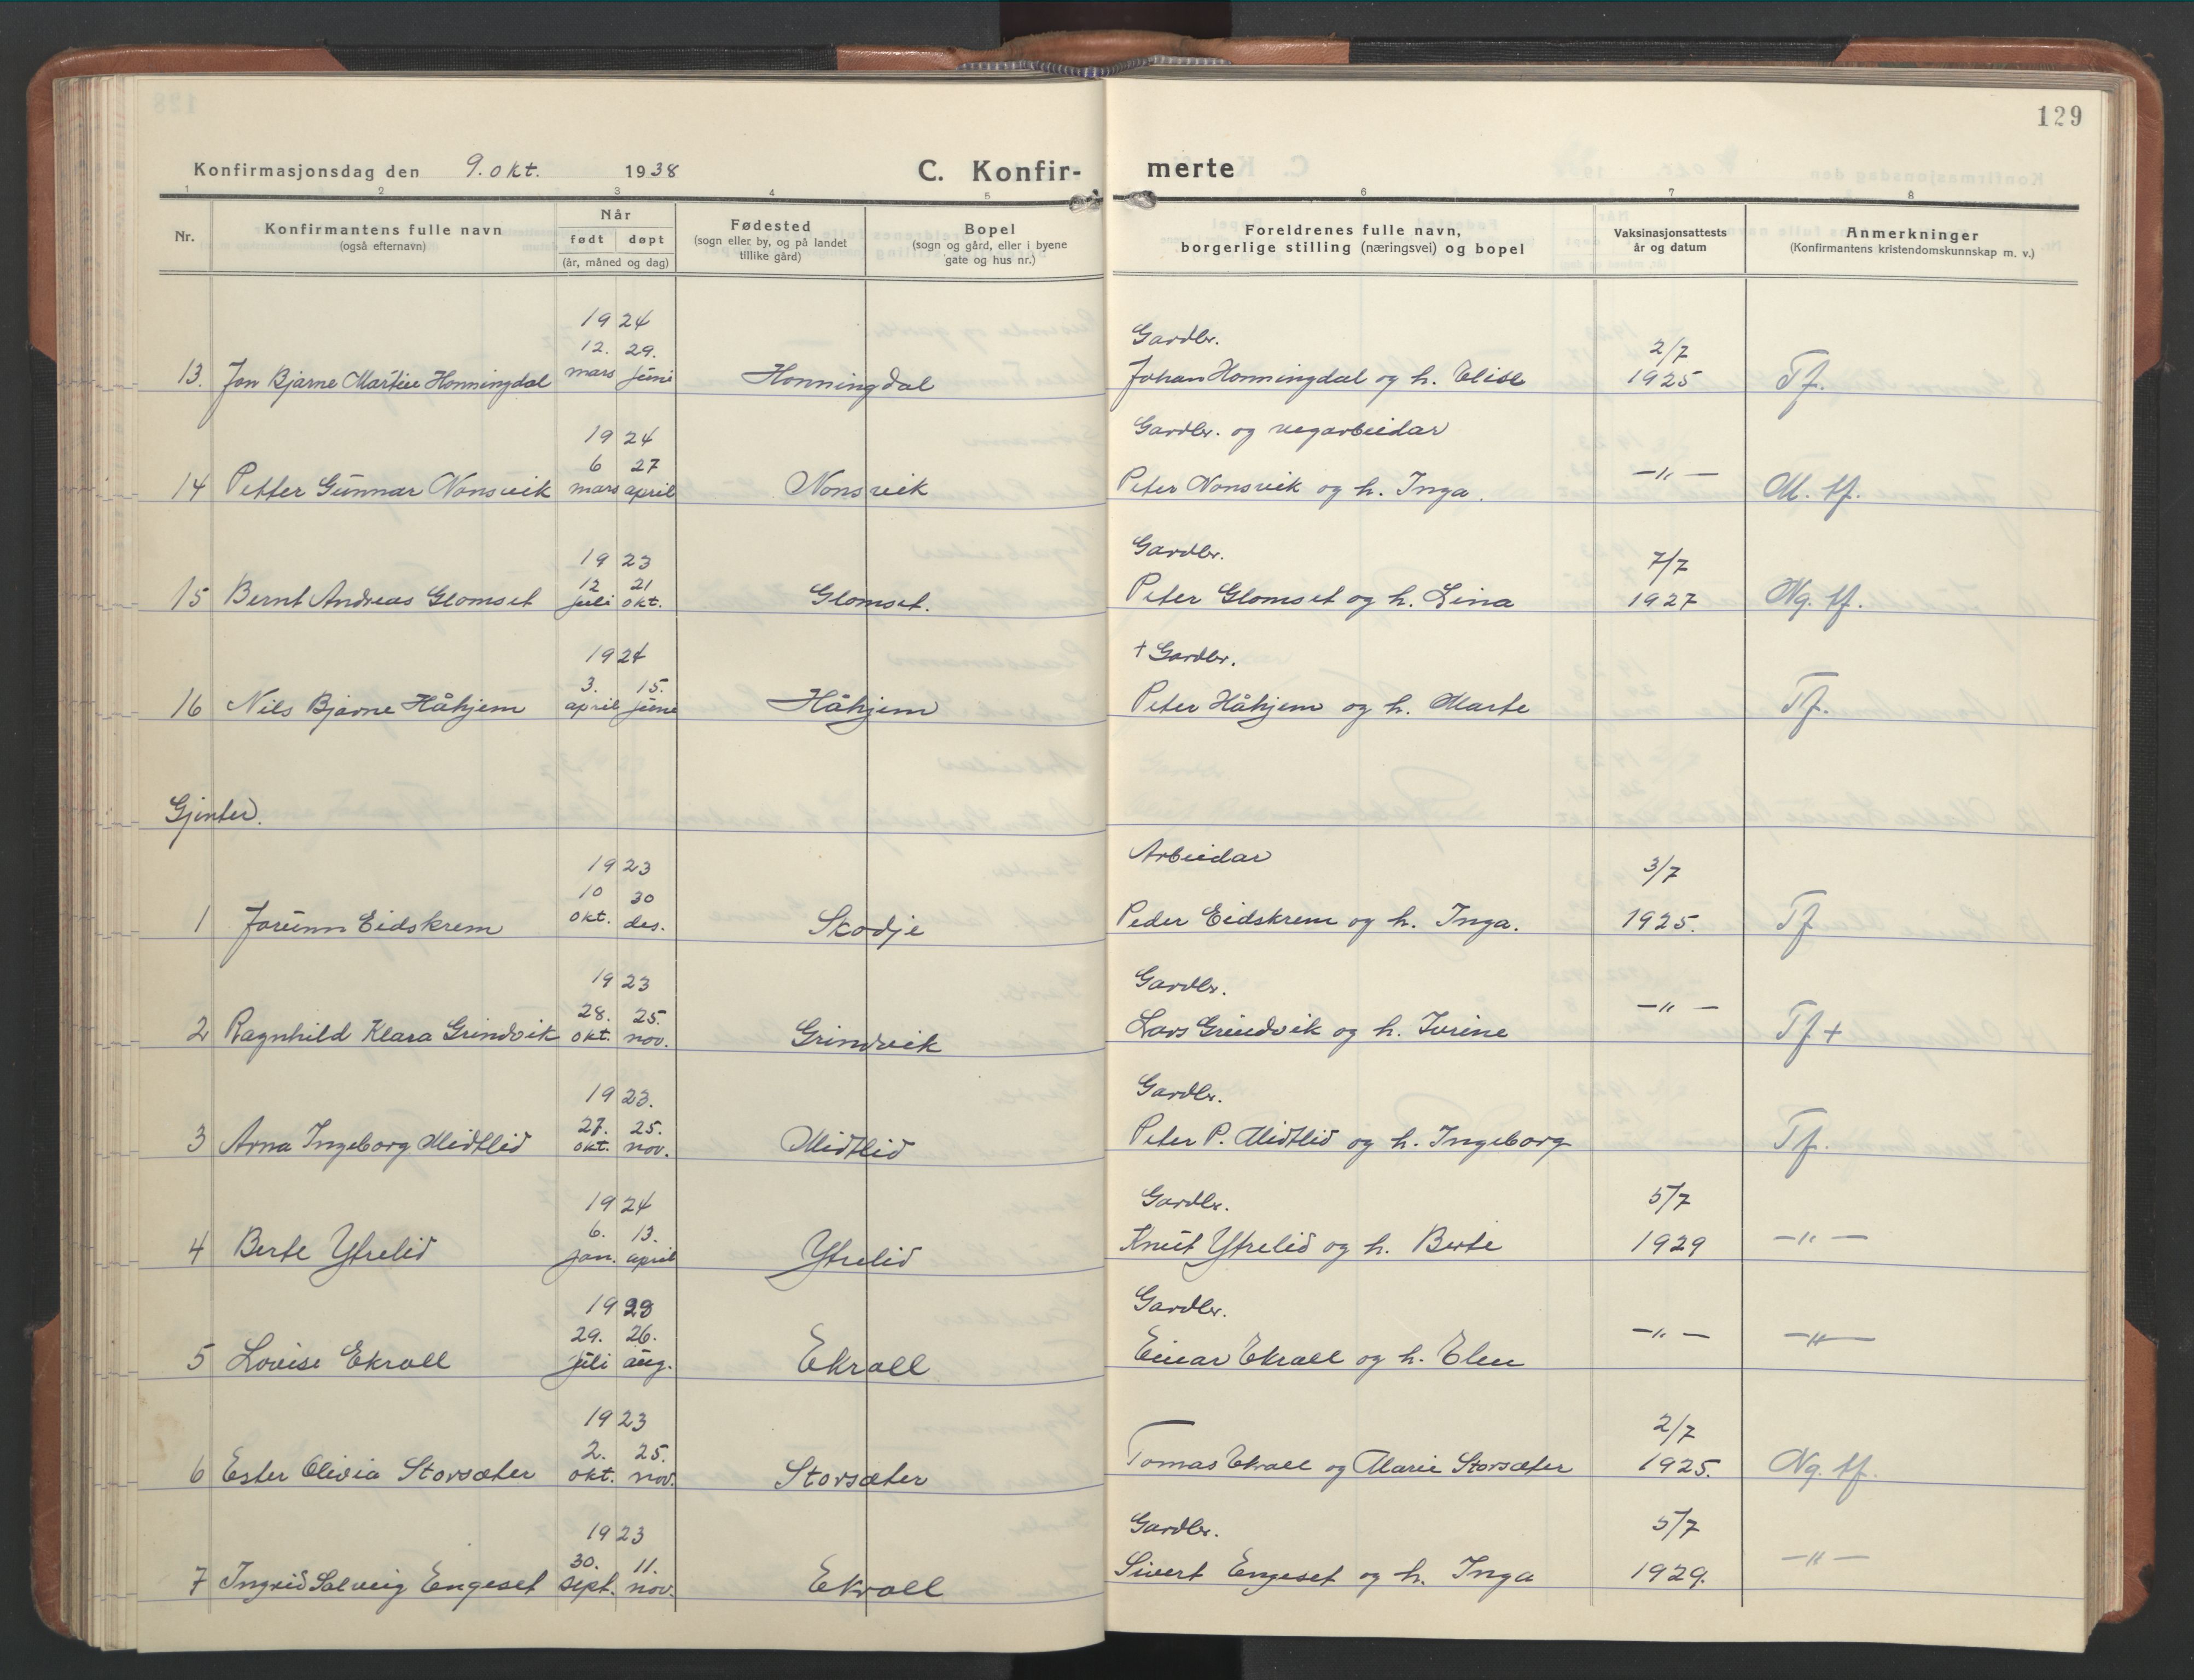 129
Konfirmasjonsdag den 9. okt. 1938 C. Konfir- merte
1 2 3 4 5 6 7 8
Nr. Konfirmantens fulle navn (også efternavn) Når født døpt (år, måned og dag) Fødested (sogn eller by, og på landet tillike gård) Bopel (sogn og gård, eller i byene gate og hus nr.) Foreldrenes fulle navn, borgerlige stilling (næringsvei) og bopel Vaksinasjonsattests år og datum Anmerkninger (Konfirmantens kristendomskunnskap m. v.)
1924 Gardbr.
12. 29. 2/7
13. Jon Bjarne Martin Honningdal mars juni Honningdal Johan Honningdal og h. Elise 1925 Tf.
1924 Gardbr. og vegarbeidar
6 27
14 Petter Gunnar Nonsvik mars april Nonsvik Peter Nonsvik og h. Inga. —„— M. tf.
1923 Gardbr.
12 21 7/7
15 Bernt Andreas Glomset juli okt. Glomset. Peter Glomset og h. Lina 1927 Ng. tf.
1924 + Gardbr.
3. 15.
16 Nils Bjarne Håhjem april june Håhjem Peter Håhjem og h. Marte Tf.
Gjenter.
1923 Arbeidar
10 30 3/7
1 Jorunn Eidskrem okt. des. Skodje Peder Eidskrem og h. Inga. 1925. Tf
1923 Gardbr.
28. 25.
2 Ragnhild Klara Grindvik okt. nov. Grindvik Lars Grindvik og h. Iverine —„— Tf +
1923. Gardbr.
27. 25.
3 Arna Ingeborg Midtlid okt. nov. Midtlid Peter P. Midtlid og h. Ingeborg Tf.
1924 Gardbr.
6. 13. 5/7
4 Berte Ytrelid jan. april Ytrelid Knut Ytrelid og h. Berte 1929 —„—
19 Gardbr.
29. 26.
5 Lovise Ekroll juli aug. Ekroll Einar Ekroll og h. Elen —„— —„—
1923
2. 25. 2/7
6 Ester Olivia Storsæter okt. nov. Storsæter Tomas Ekroll og Marie Storsæter 1925. Ng. tf.
1923 Gardbr.
30. 11. 5/7
7 Ingrid Solveig Engeset sept. nov. Ekroll Sivert Engeset og h. Inga 1929. —„—